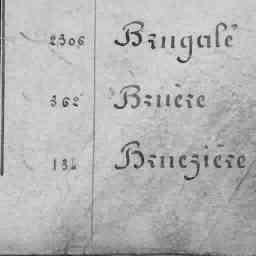 2306 Brugalé
362 Bruère
132 Brunezière